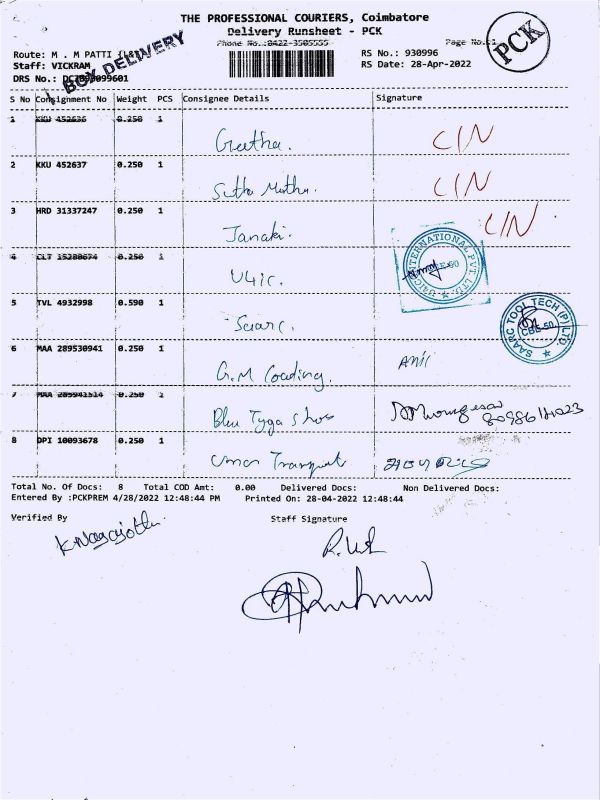 THE PROFESSIONAL COURIERS, Coimbatore
Delivery Runsheet - PCK
Phone No.:0422-3505555
Page No.:1
PCK
Route: M . M PATTI (L&T)
RS No.: 930996
Staff: VICKRAM
RS Date: 28-Apr-2022
DRS No.:
BOX DELIVERY
S No Consignment No Weight PCS Consignee Details Signature
1 KKU 452636 0.250 1
Geetha. C/N
2 KKU 452637 0.250 1
C/N
3 HRD 31337247 0.250 1
Janaki. C/N
4 CLT 15280674 0.250 1
U4ic.
U4IC INTERNATIONAL PVT. LTD.
5 TVL 4932998 0.590 1
Saarc.
SAARC TOOL TECH (P) LTD.
CBE-50
6 MAA 289530941 0.250 1
G.M Coading. Anil
7 MAA 289941514 0.250 1
Blue Tyga Shoe
8 DPI 10093678 0.250 1
Transport
Total No. Of Docs: 8 Total COD Amt: 0.00 Delivered Docs: Non Delivered Docs:
Entered By :PCKPREM 4/28/2022 12:48:44 PM Printed On: 28-04-2022 12:48:44
Verified By Staff Signature